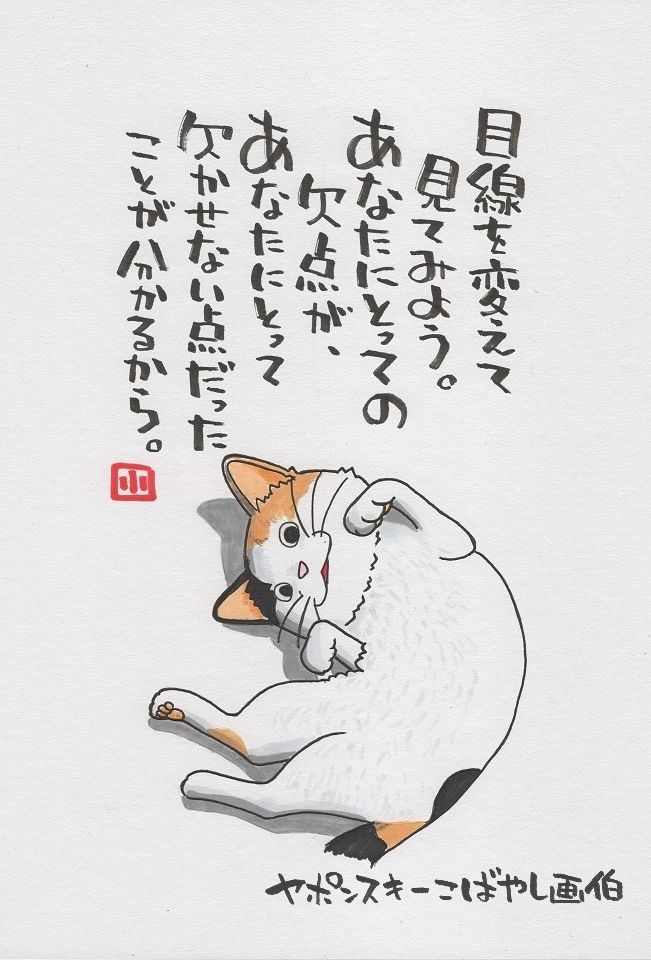 目線を変えて
見てみよう。
あなたにとっての
欠点が、
あなたにとって
欠かせない点だった
ことが分かるから。
小
ヤポンスキーこばやし画伯